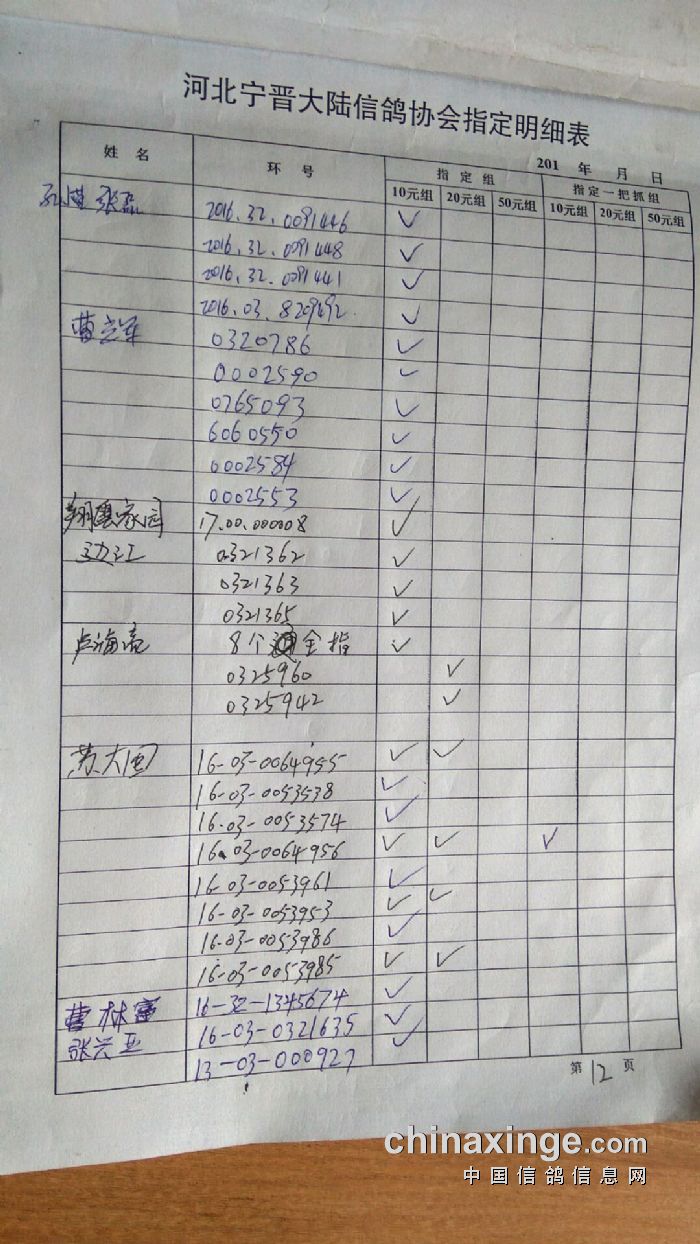 河北宁晋大陆信鸽协会指定明细表
201 年 月 日
姓名 环号 指定组 指定一把抓组
10元组 20元组 50元组 10元组 20元组 50元组
张磊 2016.32.0091446 ✓
2016.32.0091448 ✓
2016.32.0091441 ✓
2016.03.829892 ✓
曹立军 0320786 ✓
0002590 ✓
0765093 ✓
6060550 ✓
0002584 ✓
0002553 ✓
家园 17.00.000008 ✓
边江 0321362 ✓
0321363 ✓
0321365 ✓
卢海亮 8个 全指 ✓
0325960 ✓
0325942 ✓
苏大国 16-03-0064955 ✓ ✓
16-03-0053538 ✓
16-03-0053574 ✓
16-03-0064956 ✓ ✓ ✓
16-03-0053961 ✓
16-03-0053953 ✓ ✓
16-03-0053986 ✓
16-03-0053985 ✓ ✓
曹林 16-32-1345674 ✓
张兴亚 16-03-0321635 ✓
13-03-000927 ✓
第12页
chinaxinge.com
中国信鸽信息网